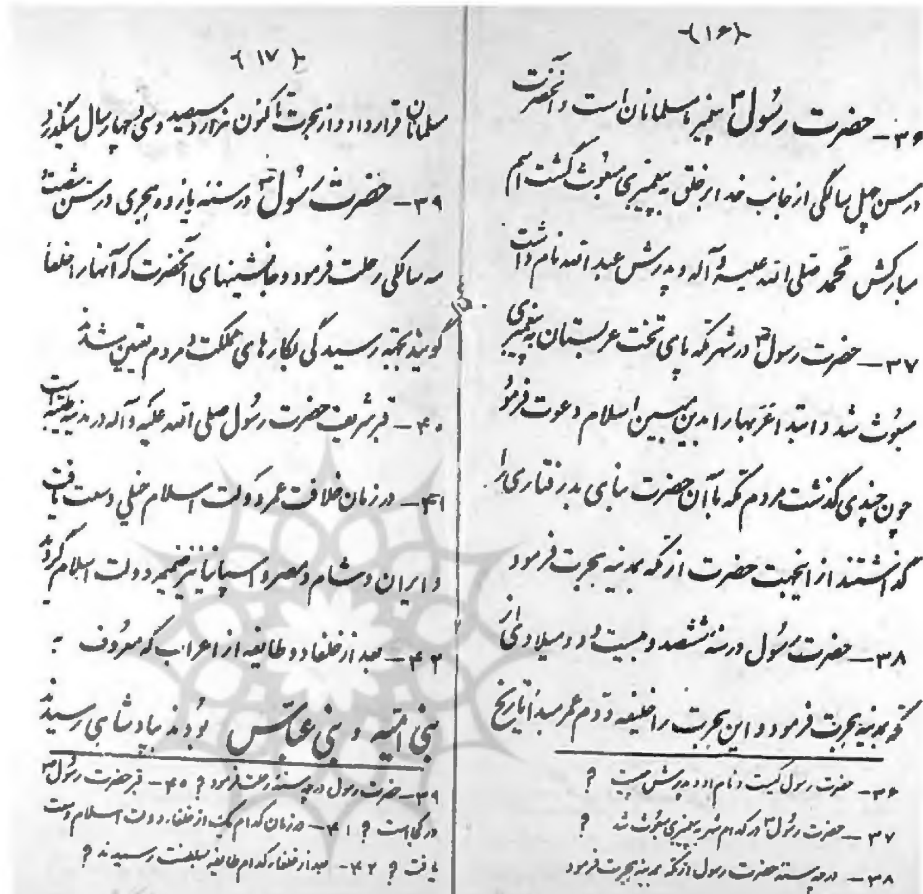 -(۱۶)-
۳۶- حضرت رسول ص پیغمبر ما مسلمانان است و آنحضرت
در سن چهل سالگی از جانب خدا بر خلق به پیغمبری مبعوث گشت اسم
مبارکش محمد صلی الله علیه و آله و پدرش عبدالله نام داشت
۳۷- حضرت رسول ص در شهر مکه پای تخت عربستان به پیغمبری
مبعوث شد و ابتدا عربها را بدین مبین اسلام دعوت فرمود
چون چندی گذشت مردم مکه با آن حضرت بنای بدرفتاری را
گذاشتند از اینجهت حضرت از مکه بمدینه هجرت فرمود
۳۸- حضرت رسول در سنه ششصد و بیست و دو میلادی از
مکه بمدینه هجرت فرمود و این هجرت را خلیفه دوم عمر مبدأ تاریخ
۳۶- حضرت رسول کیست و نام او و پدرش چیست ?
۳۷- حضرت رسول ص در کدام شهر به پیغمبری مبعوث شد ?
۳۸- در چه سنه حضرت رسول از مکه بمدینه هجرت فرمود
-(۱۷)-
مسلمانان قرار داد و از هجرت تا کنون هزار و سیصد و سی و چهار سال میگذرد
۳۹- حضرت رسول ص در سنه یازده هجری در سن شصت و
سه سالگی رحلت فرمود و جانشینهای آنحضرت که آنها را خلفا
گویند بجهة رسیدگی بکارهای مملکت و مردم تعیین شدند
۴۰- قبر شریف حضرت رسول صلی الله علیه و آله در مدینه طیبه است
۴۱- در زمان خلافت عمر دولت اسلام خیلی وسعت یافت
و ایران و شام و مصر و اسپانیا نیز ضمیمه دولت اسلام گردید
۴۲- بعد از خلفا دو طایفه از اعراب که معروف به
بنی امیه و بنی عباس بودند بپادشاهی رسیدند
۳۹- حضرت رسول در چه سنه رحلت فرمود ? ۴۰- قبر حضرت رسول ص
در کجاست ? ۴۱- در زمان کدام یک از خلفا دولت اسلام وسعت
یافت ? ۴۲- بعد از خلفاء کدام طایفه بسلطنت رسیدند ?